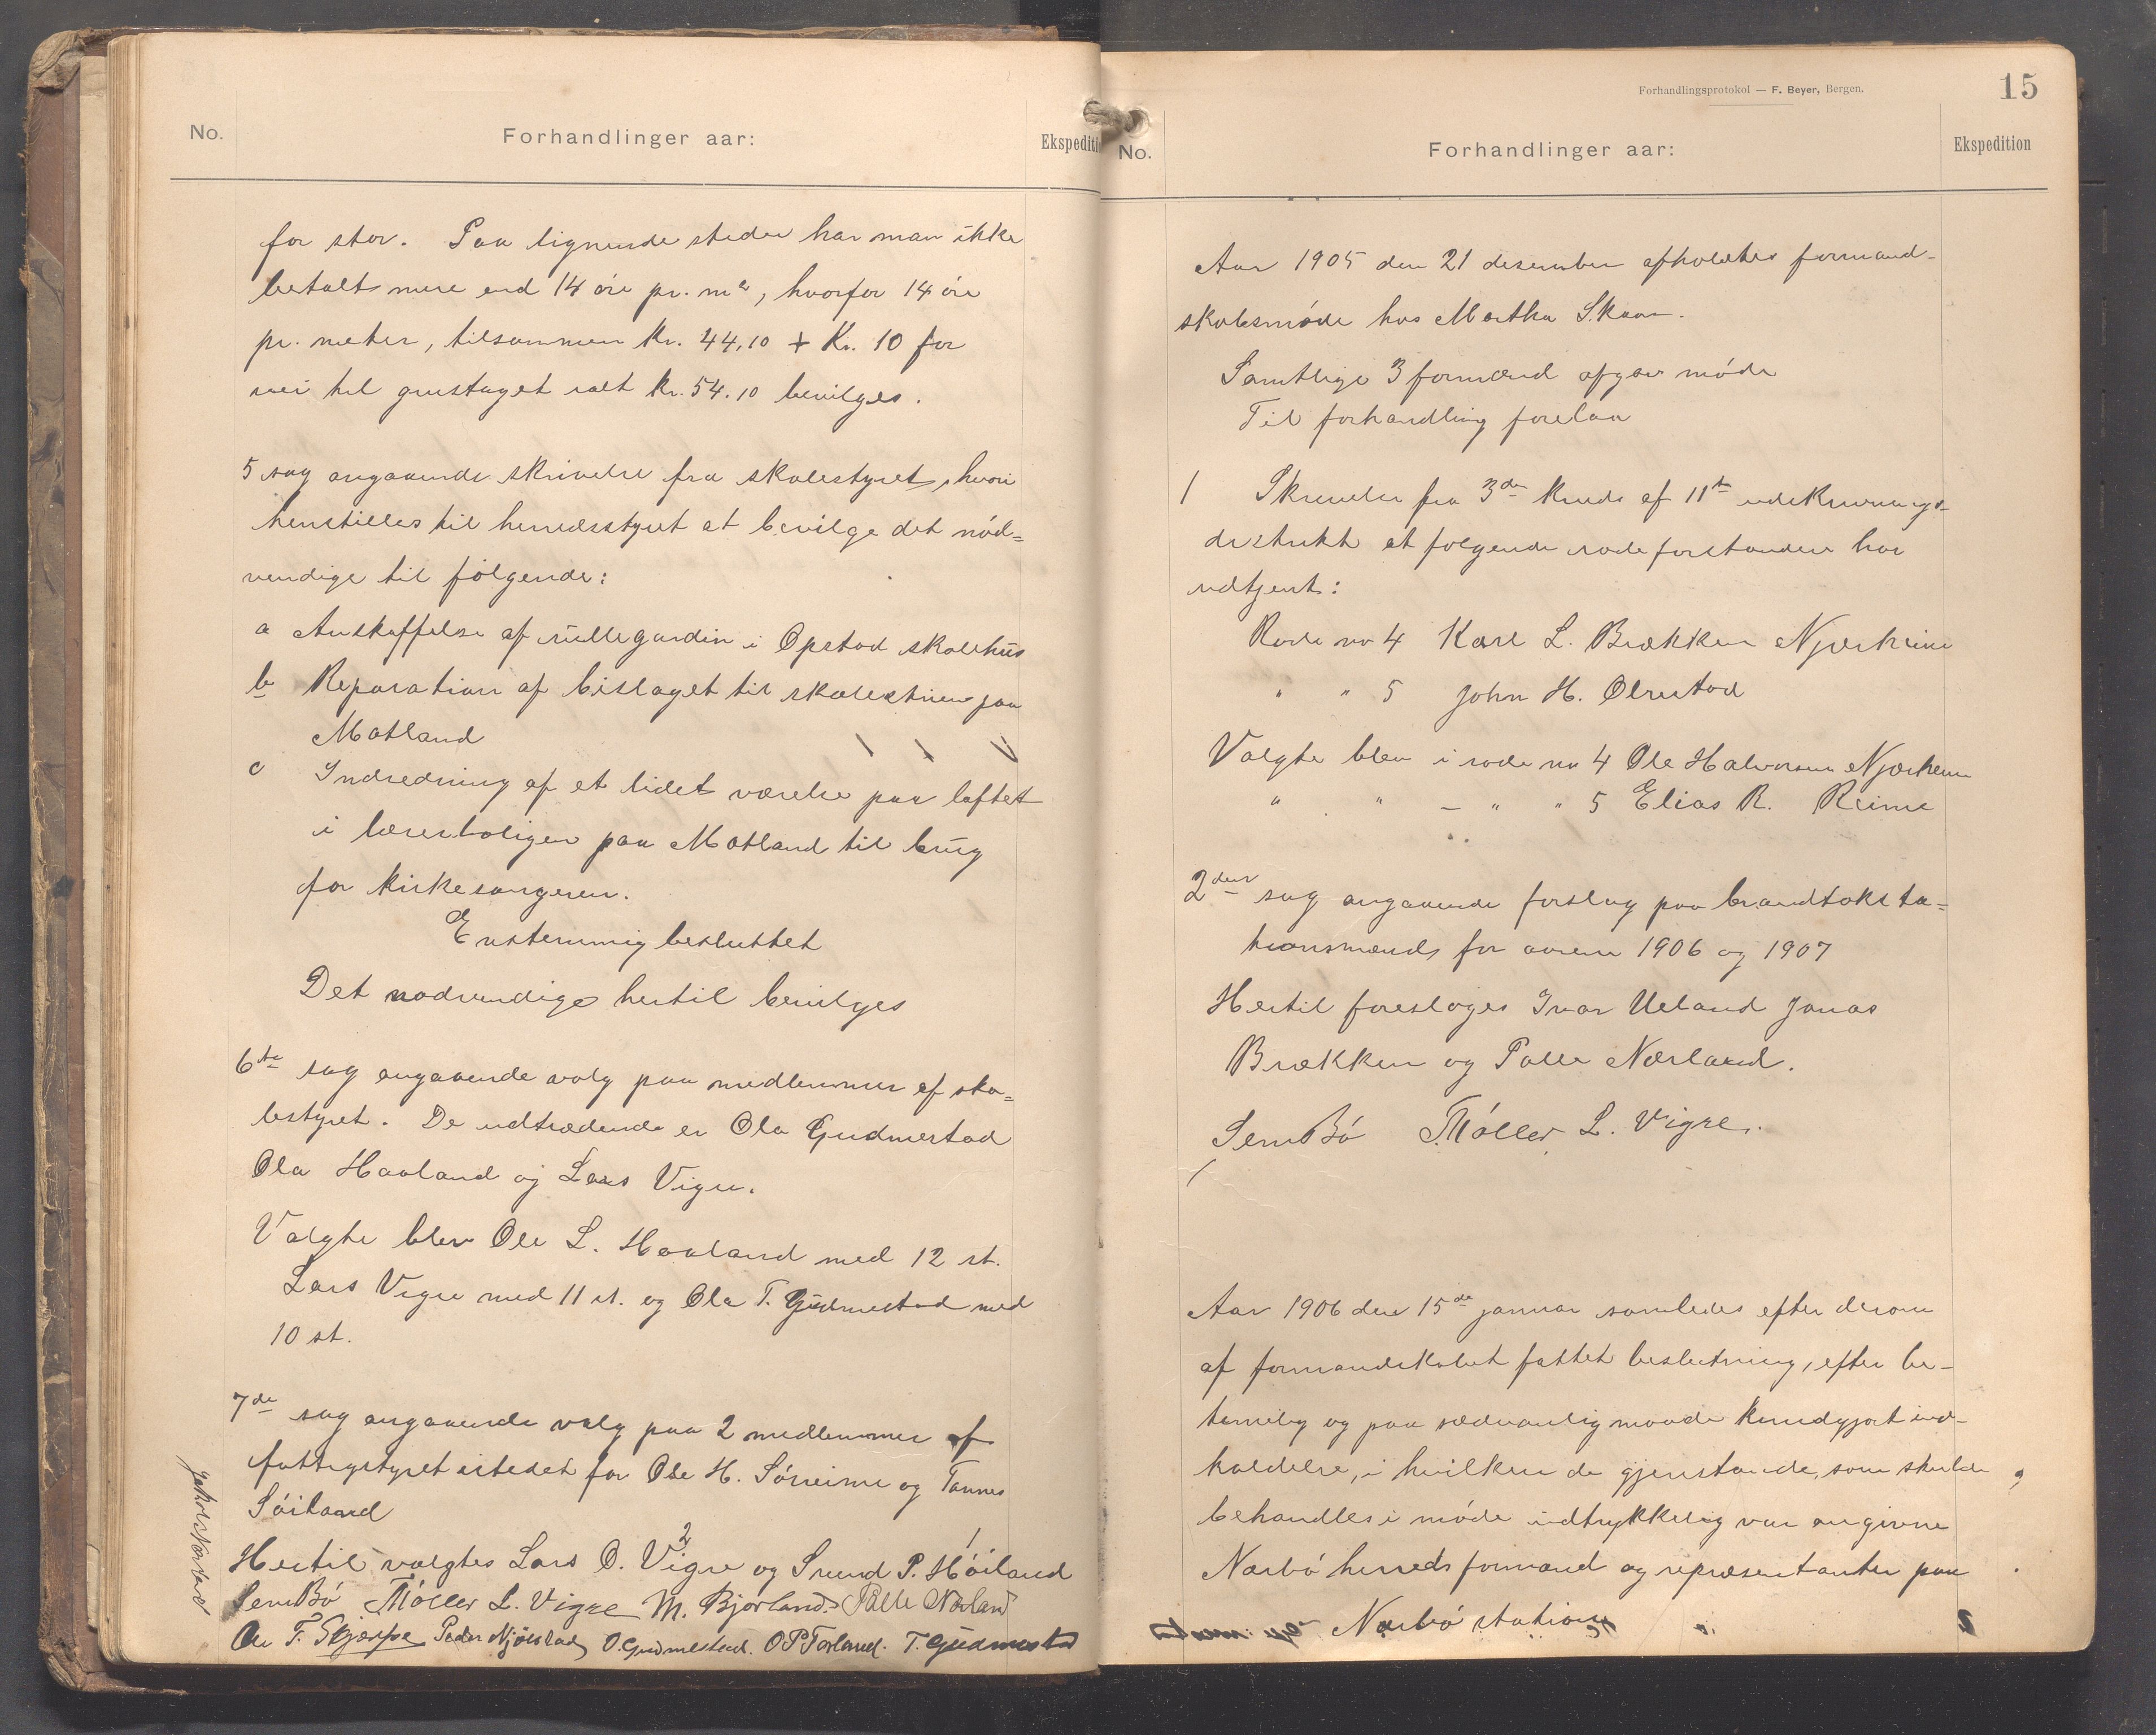 No.
Forhandlinger aar:
Ekspediti
for stor. Paa lignende steder har man ikke
betalt mere end 14 øre pr. m², hvorfor 14 øre
pr. meter, tilsammen kr. 44,10 + Kr. 10 for
vei til grustaget ialt kr. 54.10 bevilges.
5 sag angaaende skrivelse fra skolestyret, hvori
henstilles til herredsstyret at bevilge det nød=
vendige til følgende:
a Anskaffelse af rullegardin i Opstad skolehus
b Reparation af bislaget til skolestuen paa
Motland
c Indredning af et lidet værelse paa loftet
i lærerboligen paa Motland til brug
for kirkesangeren.
Enstemmig besluttet
Det nødvendige hertil bevilges
6te sag angaaende valg paa medlemmer af sko=
lestyret. De udtrædende er Ola Gudmestad
Ola Haaland og Lars Vigre.
Valgte blev Ole L. Haaland med 12 st.
Lars Vigre med 11 st. og Ola T. Gudmestad med
10 st.
7de sag angaaende valg paa 2 medlemmer af
fattigstyret istedet for Ole H. Søreime og Tønnes
Søiland
2 1
Hertil valgtes Lars O. Vigre og Svend P. Høiland
Sem Bø T. Møller L. Vigre M. Bjorland. Palle Nærland
T. Skjærpe Peder Njølstad O. Gudmestad. O P Torland. T. Gudmestad
Forhandlingsprotokol — F. Beyer, Bergen.
15
No.
Forhandlinger aar:
Ekspedition
Aar 1905 den 21 desember afholdtes formand-
skabsmøde hos Martha Skaar.
Samtlige 3 formænd afgav møde
Til forhandling forelaa
1 Skrivelse fra 3de kreds af 11te udskrivnings-
distrikt at følgende rodeforstandere har
udtjent:
Rode no 4 Karl L. Brækken Njærheim
" " 5 John H. Obrestad
Valgte blev i rode no 4 Ole Halvorsen Njærheim
" " – " " 5 Elias R. Reime
2den sag angaaende forslag paa brandtaksta=
tionsmænd for aarene 1906 og 1907
Hertil foresloges Ivar Ueland Jonas
Brækken og Palle Nærland.
Sem Bø T. Møller L. Vigre.
Aar 1906 den 15de januar samledes efter derom
af formandskabet fattet beslutning, efter be-
timelig og paa sædvanlig maade kundgjort ind-
kaldelse, i hvilken de gjenstande, som skulde
behandles i møde udtrykkelig var angivne
Nærbø herreds formænd og repræsentanter paa
Nærbø station